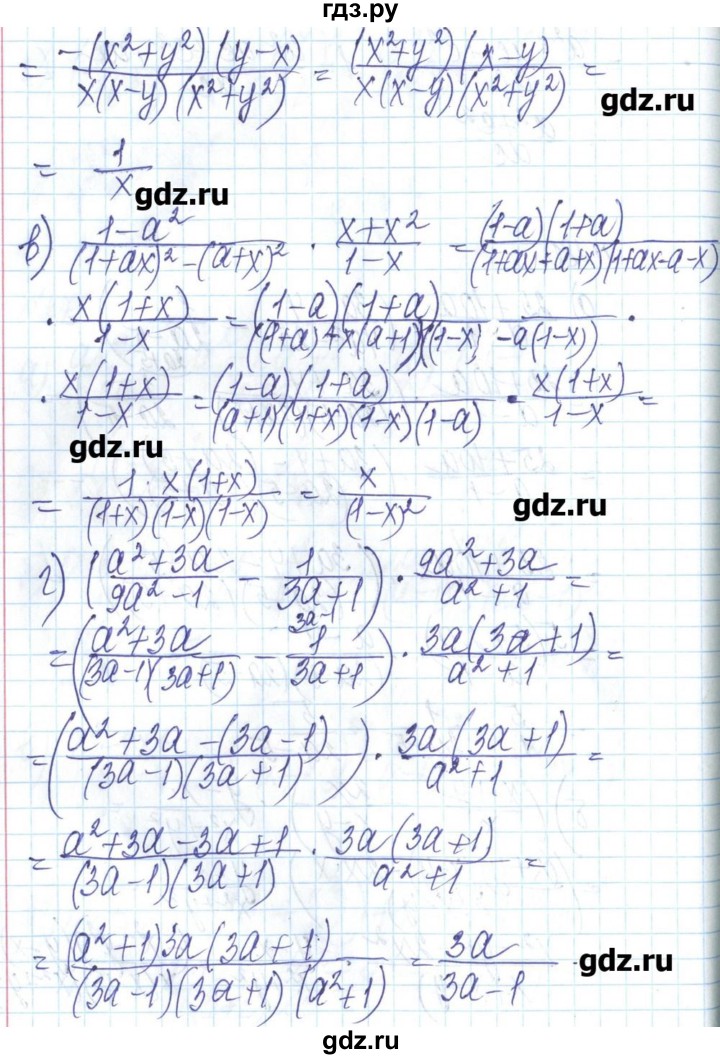 гдз.ру
= -(x²+y²)(y-x) / x(x-y)(x²+y²) = (x²+y²)(x-y) / x(x-y)(x²+y²) =
gdz.ru
= 1/x
gdz.ru
в) 1-a² / (1+ax)²-(a+x)² · x+x² / 1-x = (1-a)(1+a) / (1+ax+a+x)(1+ax-a-x)
· x(1+x) / 1-x = (1-a)(1+a) / ((1+a)+x(a+1))((1-x) -a(1-x)) ·
· x(1+x) / 1-x = (1-a)(1+a) / (a+1)(1+x)(1-x)(1-a) · x(1+x) / 1-x =
gdz.ru
= 1·x(1+x) / (1+x)(1-x)(1-x) = x / (1-x)²
gdz.ru
г) (a²+3a / 9a²-1 - 1 / 3a+1) · 9a²+3a / a²+1 =
= (a²+3a / (3a-1)(3a+1) - 3a-1 1 / 3a+1) · 3a(3a+1) / a²+1 =
= (a²+3a-(3a-1) / (3a-1)(3a+1)) · 3a(3a+1) / a²+1 =
= a²+3a-3a+1 / (3a-1)(3a+1) · 3a(3a+1) / a²+1 =
= (a²+1)3a(3a+1) / (3a-1)(3a+1)(a²+1) = 3a / 3a-1
gdz.ru
gdz.ru